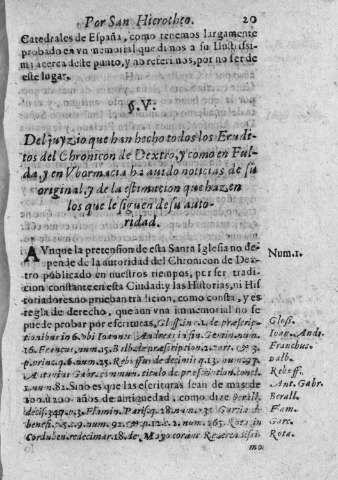 Por San Hierotheo. 20
Catedrales de España, como tenemos largamente
probado en vn memorial que dimos a su Ilustrissi
mi acerca deste punto, y no referimos, por no ser de
este lugar.
§. V.
Del juyzio que han hecho todos los Erudi
tos del Chronicon de Dextro, y como en Ful-
da, y en Vbormacia ha auido noticias de su
original, y de la estimacion que hazen
los que le siguen de su auto-
ridad.
AVnque la pretension de esta Santa Iglesia no de-
pende de la autoridad del Chronicon de Dex-
tro publicado en nuestros tiempos, por ser tradi
cion constante en esta Ciudad, y las Historias, ni His
toriadores no prueban tradicion, como consta, y es
regla de derecho, que aun vna immemorial no se
puede probar por escrituras, Gloss. in c. 1. de præscrip-
tionibus in 6. vbi Ioannes Andreas in fin. Gemin. num.
16. Francus, num. 15. Balb. de præscription. 2. part. 3.
p. princip. 6. num. 25. Rebuff. de decimis q. 13. num. 97.
Antonius Gabr. commun. titulo de præscription. concl.
1. num. 82. Sino es que las escrituras sean de mas de
100. ù 200. años de antiguedad, como dize Berall.
decis. 349. n. 3. Flamin. Paris. q. 28. num. 31. Garcia de
benefi. 5. c. 9. num. 92. p. 12. c. 2. num. 265. Rota in
Corduben. redecimar. 18. de Mayo coram
mo
Num. 1.
Gloss.
Ioan. Andr.
Franchus.
Balb.
Rebuff.
Ant. Gabr.
Berall.
Flam.
Garc.
Rota.